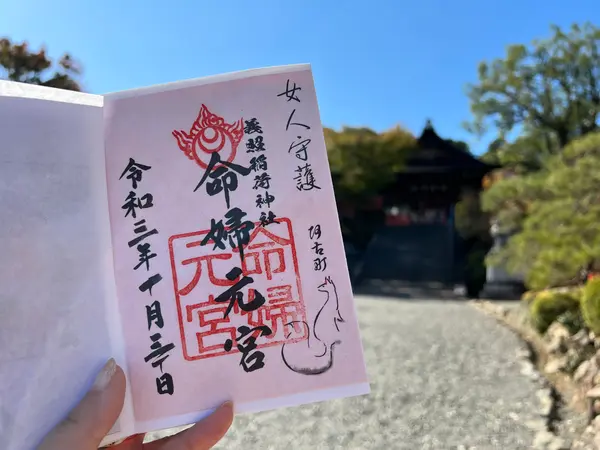 女人守護
阿古町
義照稲荷神社
命婦元宮
命婦元宮
令和三年十月三十日